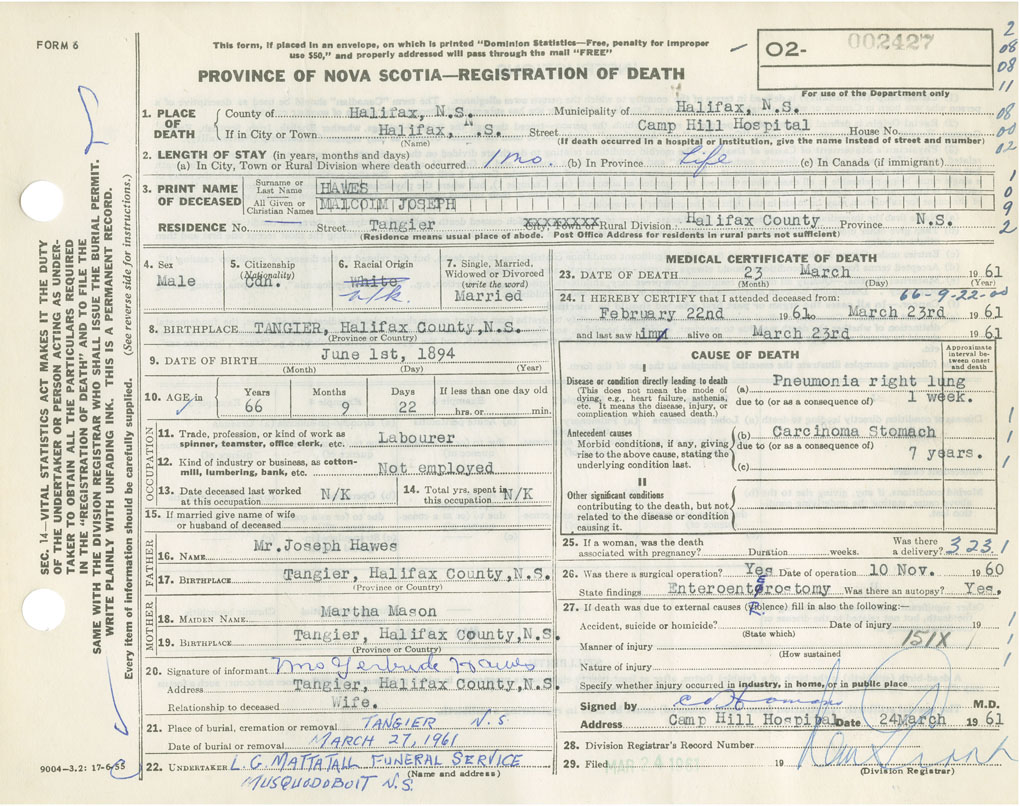 FORM 6
This form, if placed in an envelope, on which is printed "Dominion Statistics—Free, penalty for improper
use $50," and properly addressed will pass through the mail "FREE"
PROVINCE OF NOVA SCOTIA—REGISTRATION OF DEATH
O2- 002427
For use of the Department only
2
08
08
11
08
00
02
1
0
9
2
SEC. 14—VITAL STATISTICS ACT MAKES IT THE DUTY
OF THE UNDERTAKER OR PERSON ACTING AS UNDER-
TAKER TO OBTAIN ALL THE PARTICULARS REQUIRED
IN THE "REGISTRATION OF DEATH" AND TO FILE THE
SAME WITH THE DIVISION REGISTRAR WHO SHALL ISSUE THE BURIAL PERMIT.
WRITE PLAINLY WITH UNFADING INK. THIS IS A PERMANENT RECORD.
Every item of information should be carefully supplied. (See reverse side for instructions.)
1. PLACE OF DEATH
County of Halifax, N.S. Municipality of Halifax, N.S.
If in City or Town Halifax, N.S. Street Camp Hill Hospital House No.
(Name) (If death occurred in a hospital or institution, give the name instead of street and number)
2. LENGTH OF STAY (in years, months and days)
(a) In City, Town or Rural Division where death occurred 1 mo. (b) In Province Life (c) In Canada (if immigrant)
3. PRINT NAME OF DECEASED
Surname or Last Name HAWES
All Given or Christian Names MALCOLM JOSEPH
RESIDENCE No. Street Tangier City, Town or Rural Division Halifax County Province N.S.
(Residence means usual place of abode. Post Office Address for residents in rural parts not sufficient)
4. Sex
Male
5. Citizenship
(Nationality)
Cdn.
6. Racial Origin
White
n/k.
7. Single, Married,
Widowed or Divorced
(write the word)
Married
8. BIRTHPLACE TANGIER, Halifax County, N.S.
(Province or Country)
9. DATE OF BIRTH June 1st, 1894
(Month) (Day) (Year)
10. AGE in
Years Months Days If less than one day old
66 9 22 hrs. or min.
OCCUPATION
11. Trade, profession, or kind of work as
spinner, teamster, office clerk, etc. Labourer
12. Kind of industry or business, as cotton-
mill, lumbering, bank, etc. Not employed
13. Date deceased last worked
at this occupation N/K
14. Total yrs. spent in
this occupation N/K
15. If married give name of wife
or husband of deceased
FATHER
16. NAME Mr. Joseph Hawes
17. BIRTHPLACE Tangier, Halifax County, N.S.
(Province or Country)
MOTHER
18. MAIDEN NAME Martha Mason
19. BIRTHPLACE Tangier, Halifax County, N.S.
(Province or Country)
20. Signature of informant Mrs Gertrude Hawes
Address Tangier, Halifax County, N.S.
Relationship to deceased Wife.
21. Place of burial, cremation or removal TANGIER N.S
Date of burial or removal MARCH 27, 1961
22. UNDERTAKER L.G. MATTATALL FUNERAL SERVICE
(Name and address)
MUSQUODOBOIT N.S.
9004-3.2: 17-6-55
MEDICAL CERTIFICATE OF DEATH
23. DATE OF DEATH 23 March 1961
(Month) (Day) (Year)
66-9-22-00
24. I HEREBY CERTIFY that I attended deceased from:
February 22nd 1961 to March 23rd 1961
and last saw him alive on March 23rd 1961
CAUSE OF DEATH
Approximate
interval be-
tween onset
and death
I
Disease or condition directly leading to death
(This does not mean the mode of
dying, e.g., heart failure, asthenia,
etc. It means the disease, injury, or
complication which caused death.)
(a) Pneumonia right lung
due to (or as a consequence of) 1 week.
Antecedent causes
Morbid conditions, if any, giving
rise to the above cause, stating the
underlying condition last.
(b) Carcinoma Stomach
due to (or as a consequence of) 7 years.
(c)
II
Other significant conditions
contributing to the death, but not
related to the disease or condition
causing it.
1
1
1
25. If a woman, was the death
associated with pregnancy? Duration weeks. Was there
a delivery? 3 2 3. 1
26. Was there a surgical operation? Yes Date of operation 10 Nov. 1960
State findings Enteroenterostomy Was there an autopsy? Yes.
27. If death was due to external causes (Violence) fill in also the following:—
Accident, suicide or homicide? Date of injury 19
(State which)
Manner of injury 151X
(How sustained
Nature of injury
1
1
1
Specify whether injury occurred in industry, in home, or in public place
Signed by M.D.
Address Camp Hill Hospital Date 24 March 1961
28. Division Registrar's Record Number
29. Filed MAR 24 1961 19
(Division Registrar)